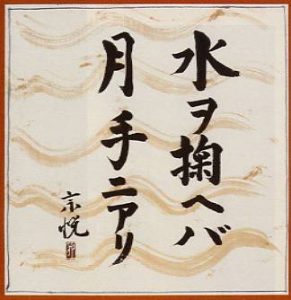 水ヲ掬ヘバ
月手ニアリ
京悦